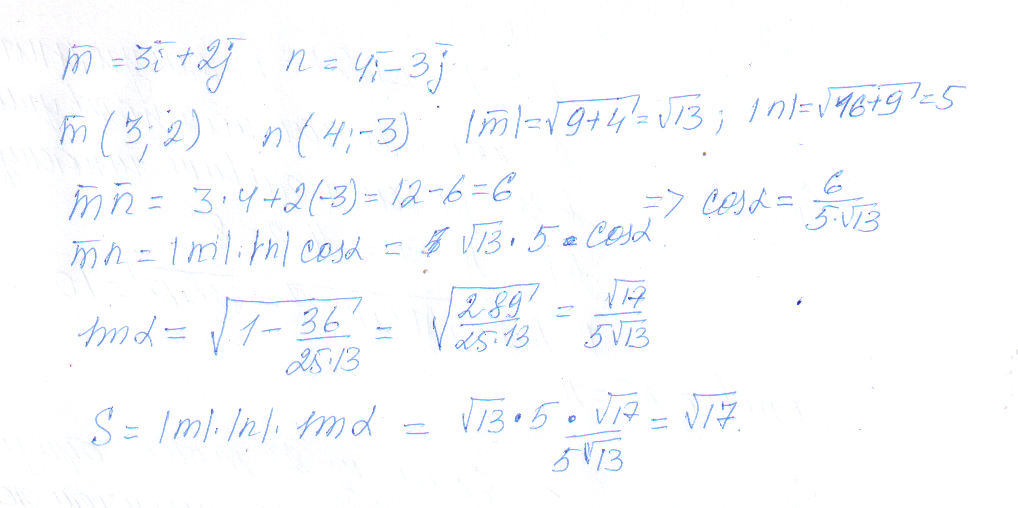 m̅ = 3i̅ + 2j̅   n = 4i̅ - 3j̅
m̅ (3; 2)   n (4; -3)   |m̅| = √(9+4) = √13 ; |n| = √(16+9) = 5
m̅n̅ = 3·4 + 2(-3) = 12 - 6 = 6
m̅n = |m|·|n| cosα = √13 · 5 · cosα => cosα = 6/(5·√13)
sinα = √(1 - 36/(25·13)) = √(289/(25·13)) = √17/(5√13)
S = |m|·|n|· sinα = √13 · 5 · √17/(5√13) = √17.